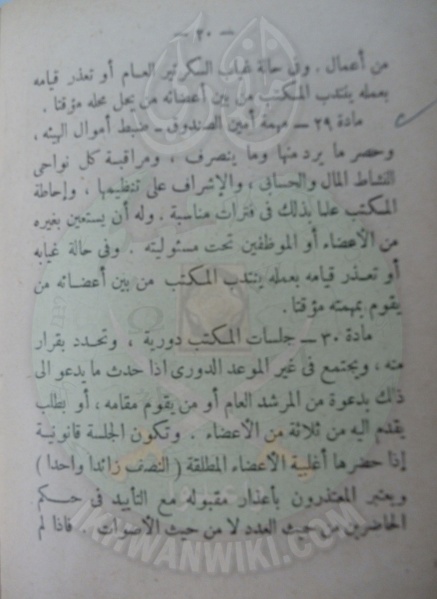 — ٢٠ —
من أعمال . وفى حالة غياب السكرتير العام أو تعذر قيامه
بعمله ينتدب المكتب من بين أعضائه من يحل محله مؤقتا .
مادة ٢٩ — مهمة أمين الصندوق - ضبط أموال الهيئه ،
وحصر ما يرد منها وما ينصرف ، ومراقبة كل نواحى
النشاط المالى والحسابى ، والإشراف على تنظيمها ، وإحاطة
المكتب علما بذلك فى فترات مناسبة . وله أن يستعين بغيره
من الأعضاء أو الموظفين تحت مسئوليته . وفى حالة غيابه
أو تعذر قيامه بعمله ينتدب المكتب من بين أعضائه من
يقوم بمهمته مؤقتا .
مادة ٣٠ — جلسات المكتب دورية ، وتحدد بقرار
منه ، ويجتمع فى غير الموعد الدورى اذا حدث ما يدعو الى
ذلك بدعوة من المرشد العام أو من يقوم مقامه ، أو بطلب
يقدم اليه من ثلاثة من الأعضاء . وتكون الجلسة قانونية
إذا حضرها أغلبية الأعضاء المطلقة ( النصف زائدا واحدا )
ويعتبر المعتذرون بأعذار مقبوله مع التأييد فى حكم
الحاضرين من حيث العدد لا من حيث الأصوات . فاذا لم
IKHWANWIKI.COM